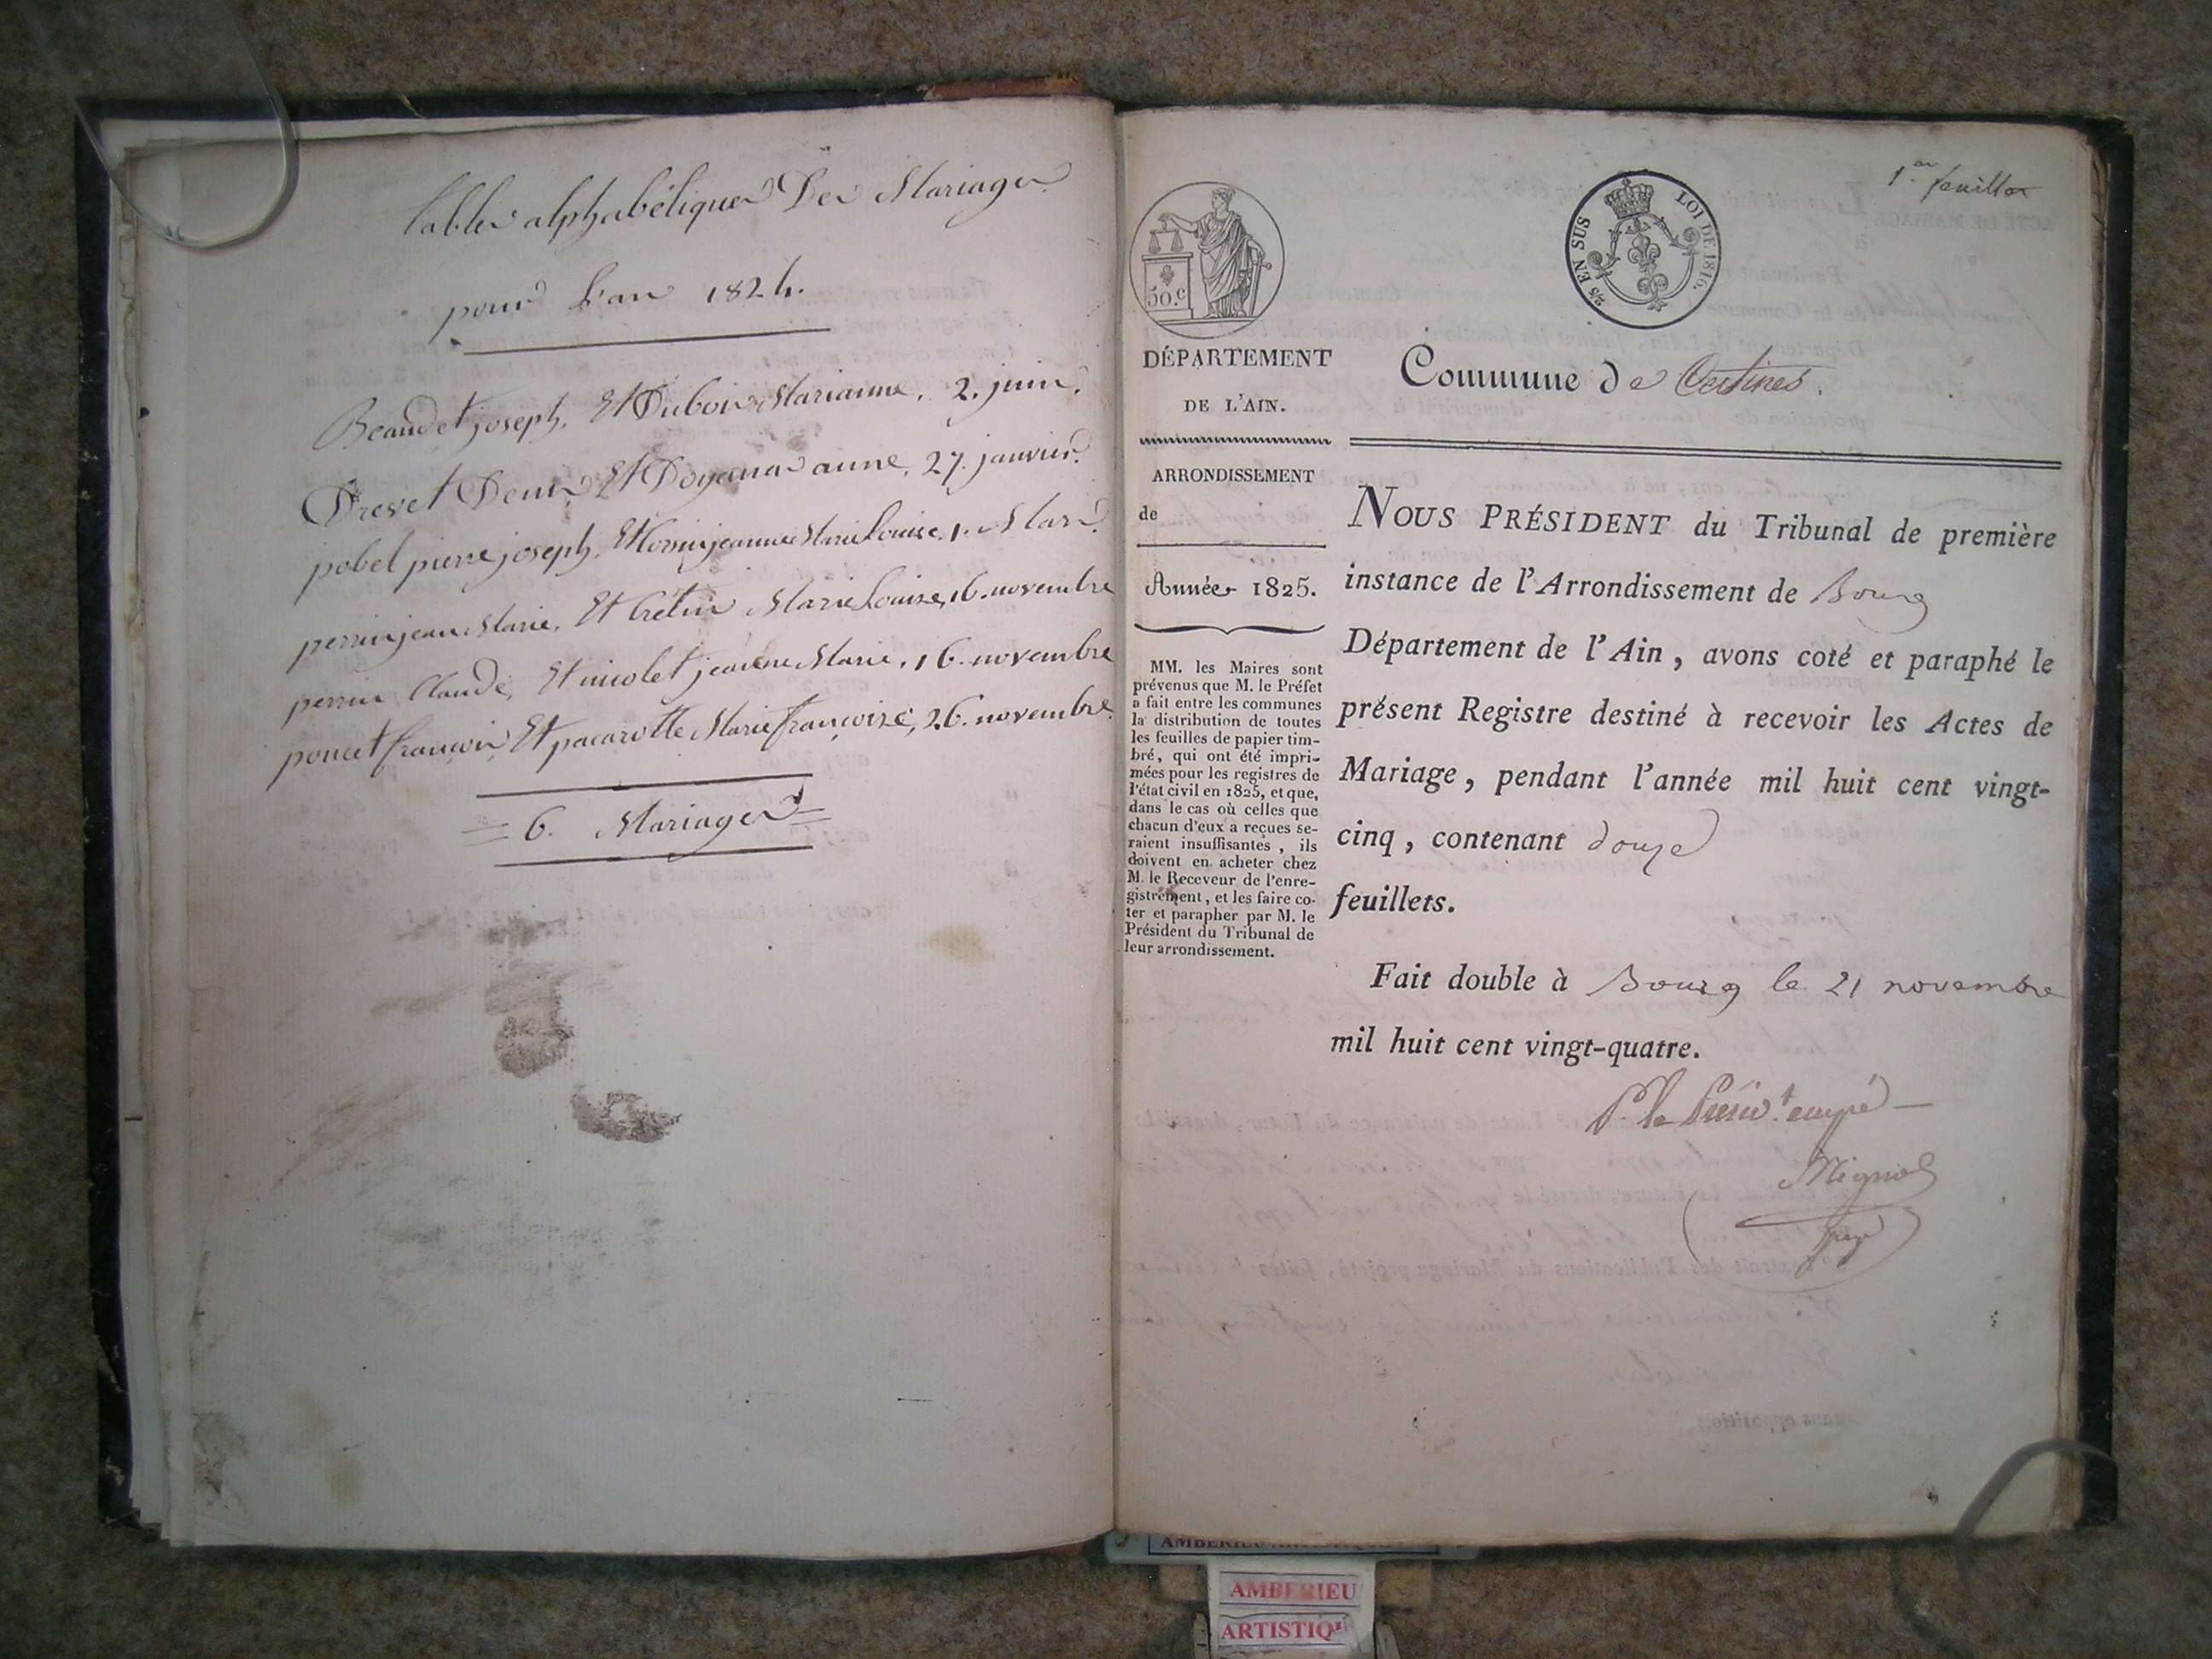 tables alphabétiques Des Mariages
pour L'an 1824.
Beaudet joseph, Et Dubois Marianne, 2. juin.
Drevet Denis Et Doyenar anne, 27. janvier.
pobel pierre joseph, Et jeanne Marie Louise, 1. Mars
perrin jean Marie, Et Cretin Marie Louise, 16. novembre
perrin Claude, Et nicolet jeanne Marie, 16. novembre
poncet françois, Et pacarotte Marie françoise, 26. novembre.
6. Mariages
1er feuillet
50.c
2/5 EN SUS LOI DE 1816.
DÉPARTEMENT
DE L'AIN.
ARRONDISSEMENT
de
Année 1825.
MM. les Maires sont
prévenus que M. le Préfet
a fait entre les communes
la distribution de toutes
les feuilles de papier tim-
bré, qui ont été impri-
mées pour les registres de
l'état civil en 1825, et que,
dans le cas où celles que
chacun d'eux a reçues se-
raient insuffisantes, ils
doivent en acheter chez
M. le Receveur de l'enre-
gistrement, et les faire co-
ter et parapher par M. le
Président du Tribunal de
leur arrondissement.
Commune de Certines.
NOUS PRÉSIDENT du Tribunal de première
instance de l'Arrondissement de Bourg
Département de l'Ain, avons coté et paraphé le
présent Registre destiné à recevoir les Actes de
Mariage, pendant l'année mil huit cent vingt-
cinq, contenant douze
feuillets.
Fait double à Bourg le 21 novembre
mil huit cent vingt-quatre.
P. le Présid.t empé
AMBERIEU
ARTISTIQ